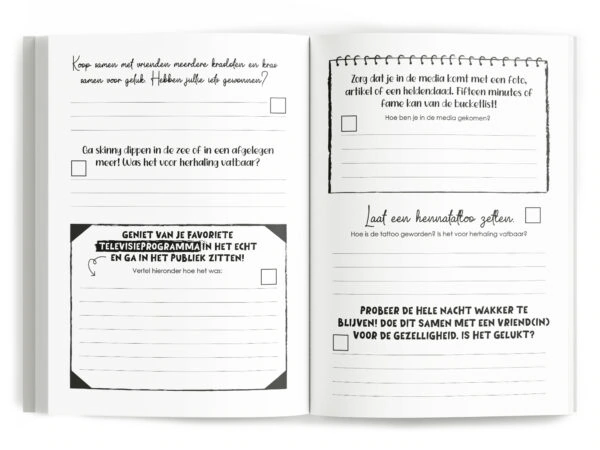 Koop samen met vrienden meerdere krasloten en kras
samen voor geluk. Hebben jullie iets gewonnen?
Ga skinny dippen in de zee of in een afgelegen
meer! Was het voor herhaling vatbaar?
GENIET VAN JE FAVORIETE
TELEVISIEPROGRAMMA IN HET ECHT
EN GA IN HET PUBLIEK ZITTEN!
Vertel hieronder hoe het was:
Zorg dat je in de media komt met een foto,
artikel of een heldendaad. Fifteen minutes of
fame kan van de bucketlist!
Hoe ben je in de media gekomen?
Laat een hennatattoo zetten.
Hoe is de tattoo geworden? Is het voor herhaling vatbaar?
PROBEER DE HELE NACHT WAKKER TE
BLIJVEN! DOE DIT SAMEN MET EEN VRIEND(IN)
VOOR DE GEZELLIGHEID. IS HET GELUKT?